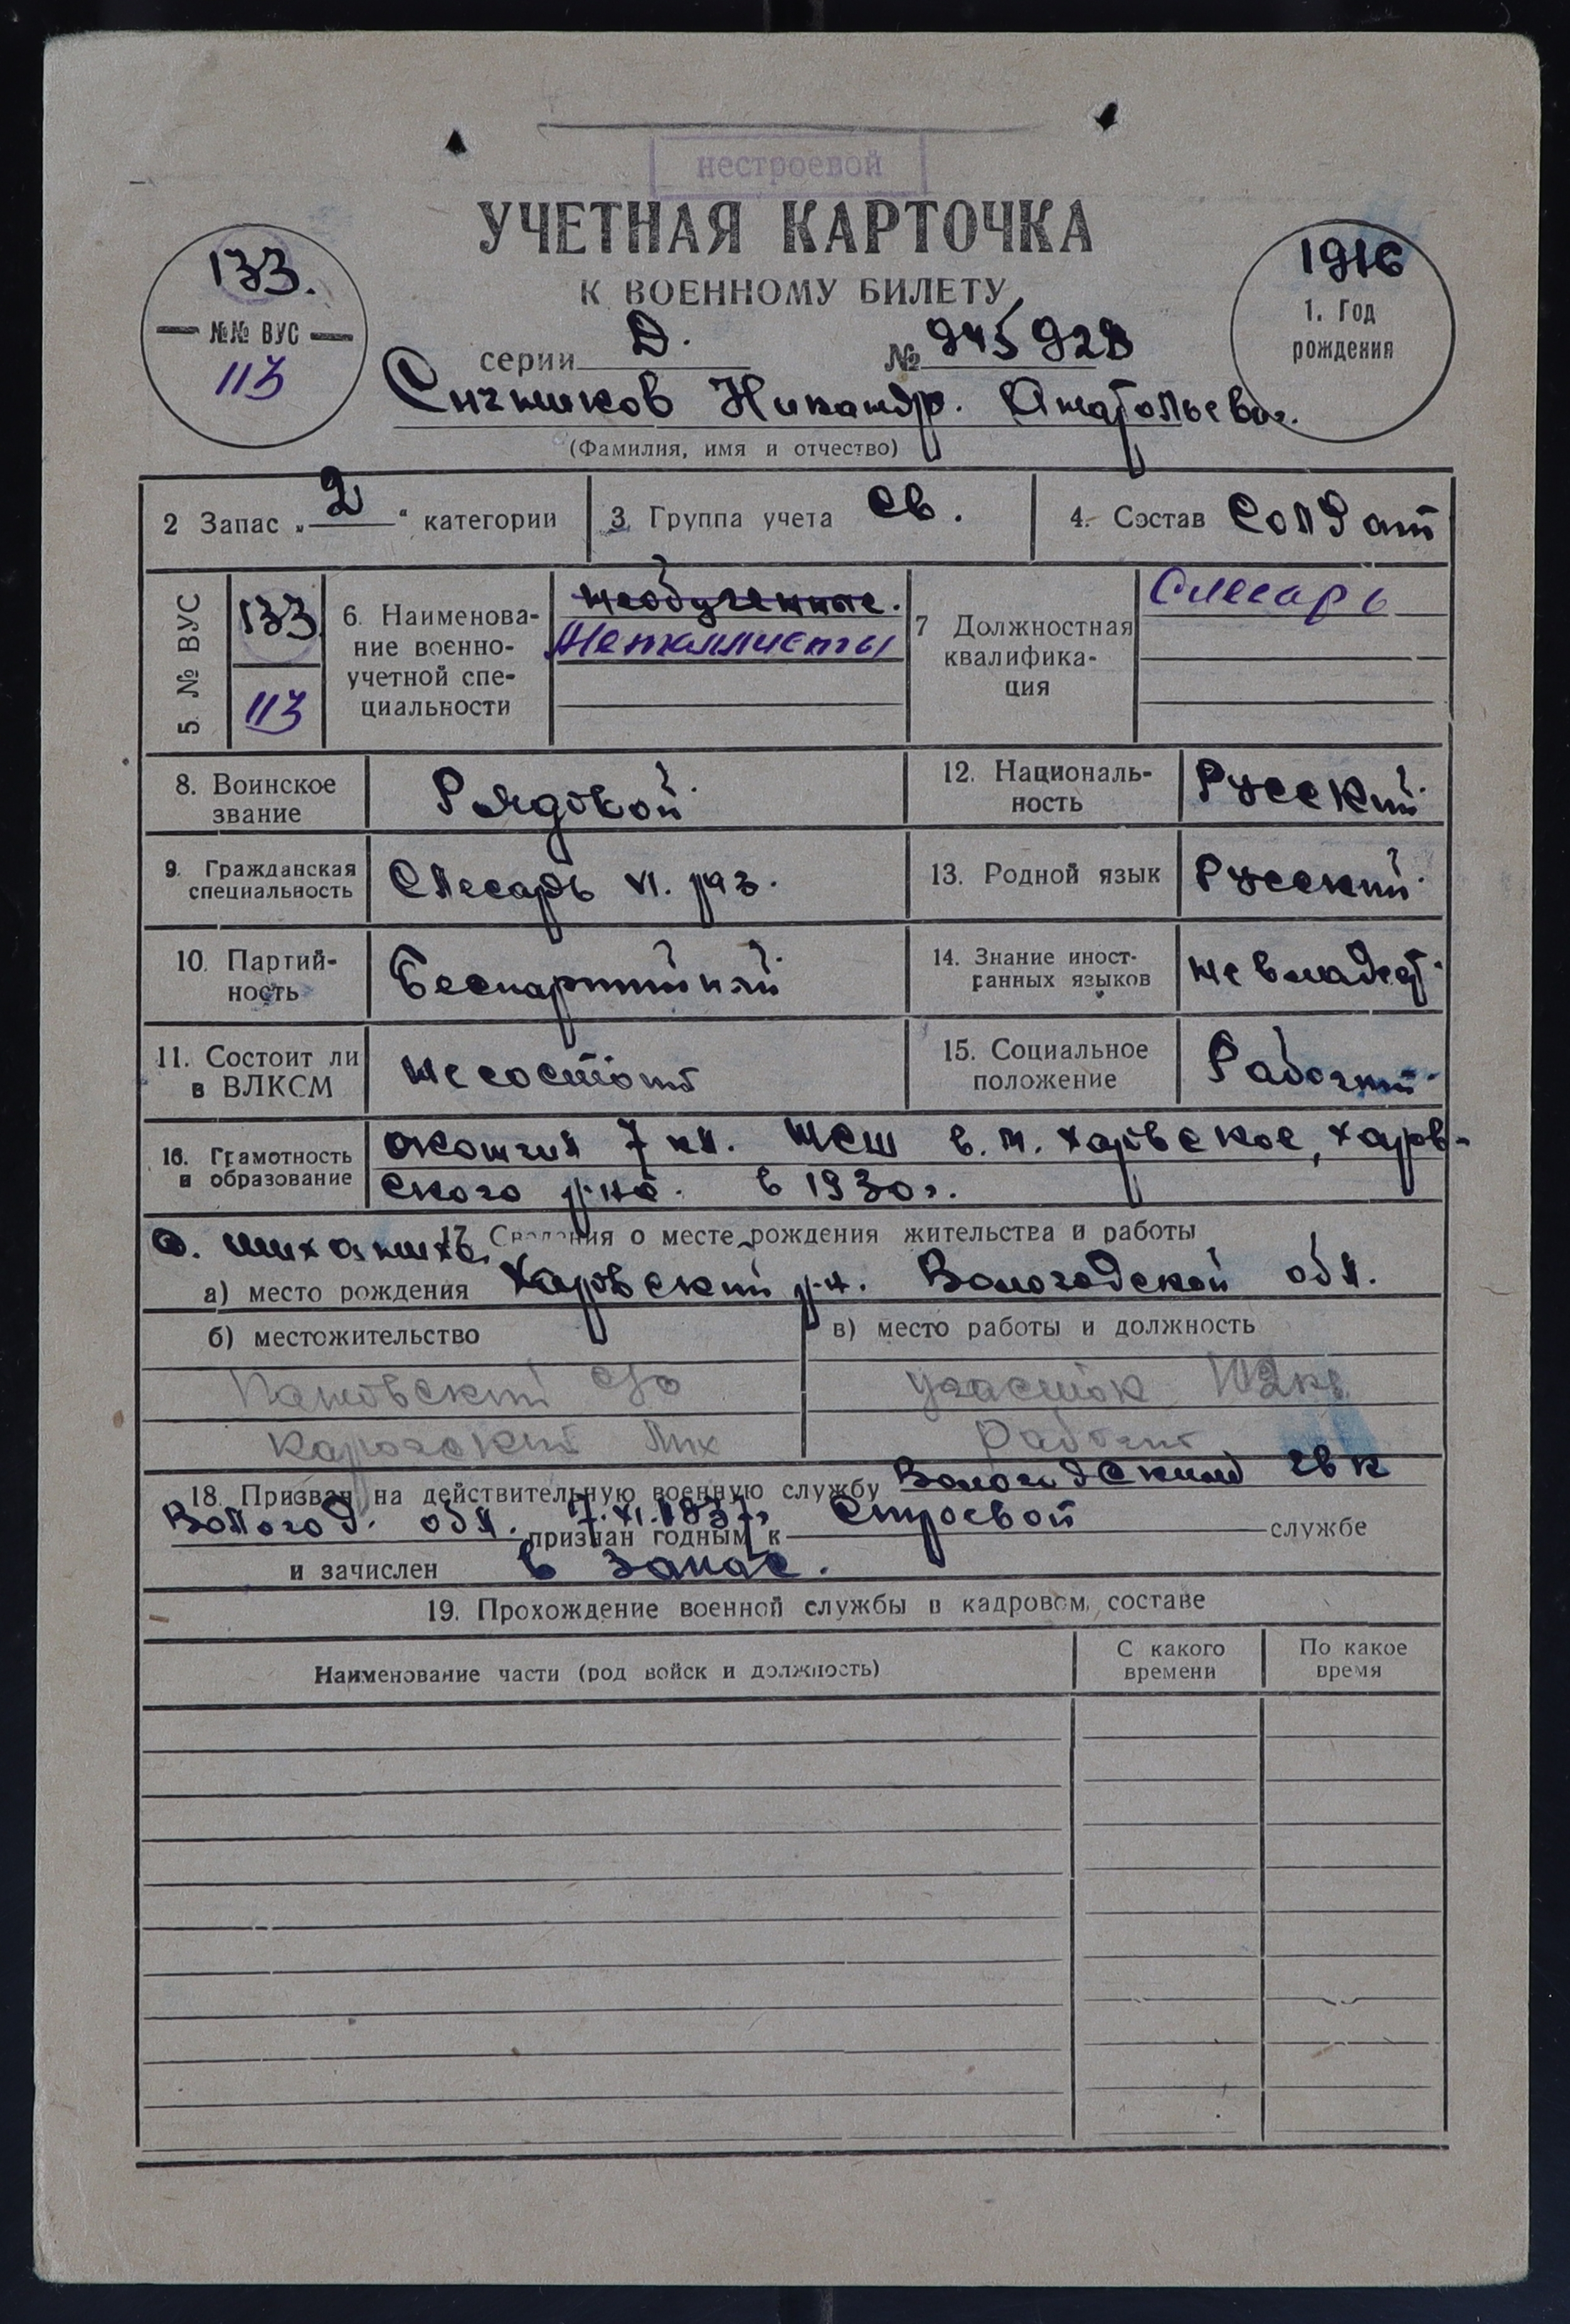 нестроевой
УЧЕТНАЯ КАРТОЧКА
К ВОЕННОМУ БИЛЕТУ
133.
№№ ВУС
113
1916
1. Год
рождения
серии Д. № 945928
Никандр. Анатольевич.
(Фамилия, имя и отчество)
2 Запас „2“ категории
3. Группа учета св.
4. Состав Солдат
5. № ВУС
133
113
6. Наименова-
ние военно-
учетной спе-
циальности
необученные.
Металлисты
7 Должностная
квалифика-
ция
Слесарь
8. Воинское
звание
Рядовой
12. Националь-
ность
Русский
9. Гражданская
специальность
Слесарь VI. раз.
13. Родной язык
Русский
10. Партий-
ность
Беспартийный
14. Знание иност-
ранных языков
не владеет
11. Состоит ли
в ВЛКСМ
не состоит
15. Социальное
положение
Рабочий
16. Грамотность
и образование
окончил 7 кл. НСШ в. Харовское, Харов-
ского р-на. в 1930г.
17. Сведения о месте рождения жительства и работы
д.
а) место рождения Харовский р-н. Вологодской обл.
б) местожительство
в) место работы и должность
участок
Рабочий
18. Призван на действительную военную службу Вологодским гвк
Вологод. обл. 7.XI.1937г признан годным к строевой службе
и зачислен в запас.
19. Прохождение военной службы в кадровом составе
Наименование части (род войск и должность)
С какого
времени
По какое
время